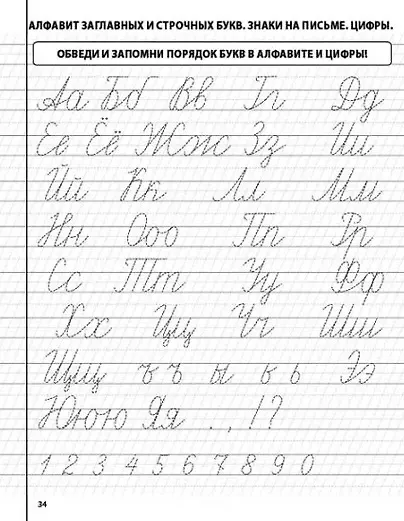 АЛФАВИТ ЗАГЛАВНЫХ И СТРОЧНЫХ БУКВ. ЗНАКИ НА ПИСЬМЕ. ЦИФРЫ.
ОБВЕДИ И ЗАПОМНИ ПОРЯДОК БУКВ В АЛФАВИТЕ И ЦИФРЫ!
Аа Бб Вв Гг Дд
Ее Ёё Жж Зз Ии
Йй Кк Лл Мм
Нн Ооо Пп Рр
Сс Тт Уу Фф
Хх Цц Чч Шш
Щщ ъ ъ ы ь ь Ээ
Ююю Яя . , ! ?
1 2 3 4 5 6 7 8 9 0
34